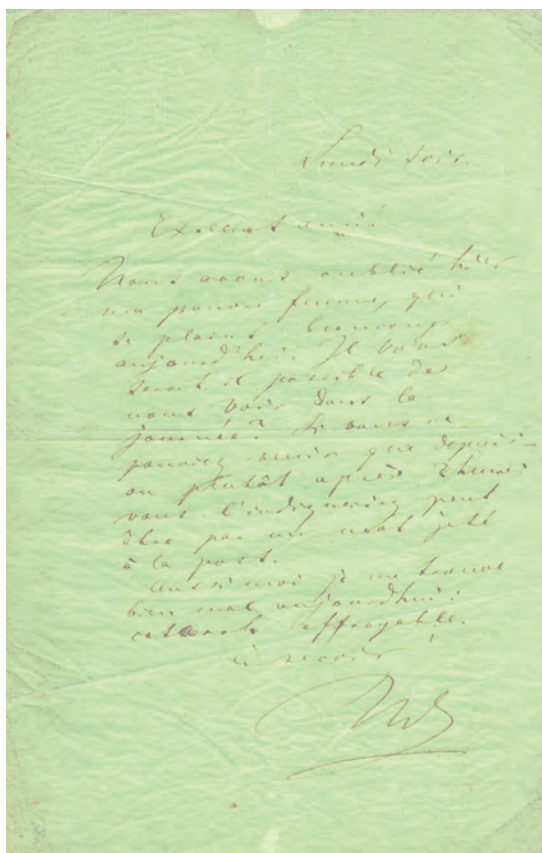 Lundi soir.
Excellent ami!
Nous avons oublié hier
ma pauvre femme, qui
se plaint beaucoup
aujourd'hui. Il vous
serait il possible de
nous voir dans la
journée? Si vous ne
pouviez venir que depuis
ou plutôt après 2 heures
vous l'indiqueriez peut
être par un mot jeté
à la post.
aussi moi je me trouve
bien mal aujourdhui:
catarrhe effroyable.
à revoir!